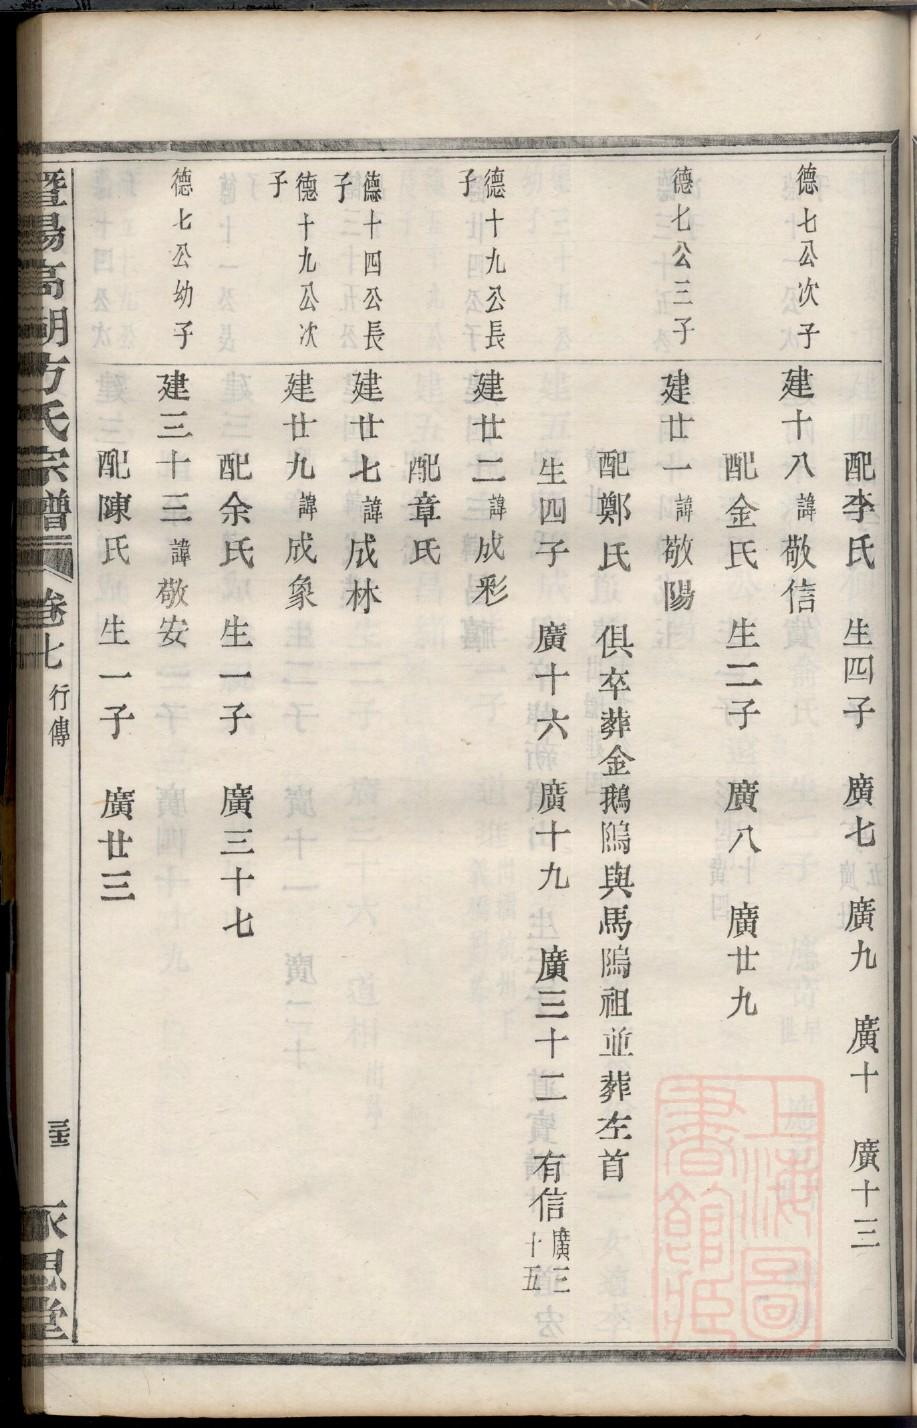 配李氏 生四子 廣七 廣九 廣十 廣十三
德七公次子 建十八諱敬信
配金氏 生二子 廣八 廣廿九
德七公三子 建廿一諱敬陽
配鄭氏 俱卒葬金鵝隝與馬隝祖並葬左首
生四子 廣十六 廣十九 廣三十二 有信廣三十五
德十九公長子 建廿二諱成彩
配章氏
德十四公長子 建廿七諱成林
德十九公次子 建廿九諱成象
配余氏 生一子 廣三十七
德七公幼子 建三十三諱敬安
配陳氏 生一子 廣廿三
暨陽高湖方氏宗譜 卷七 行傳 永思堂
上海圖書館藏